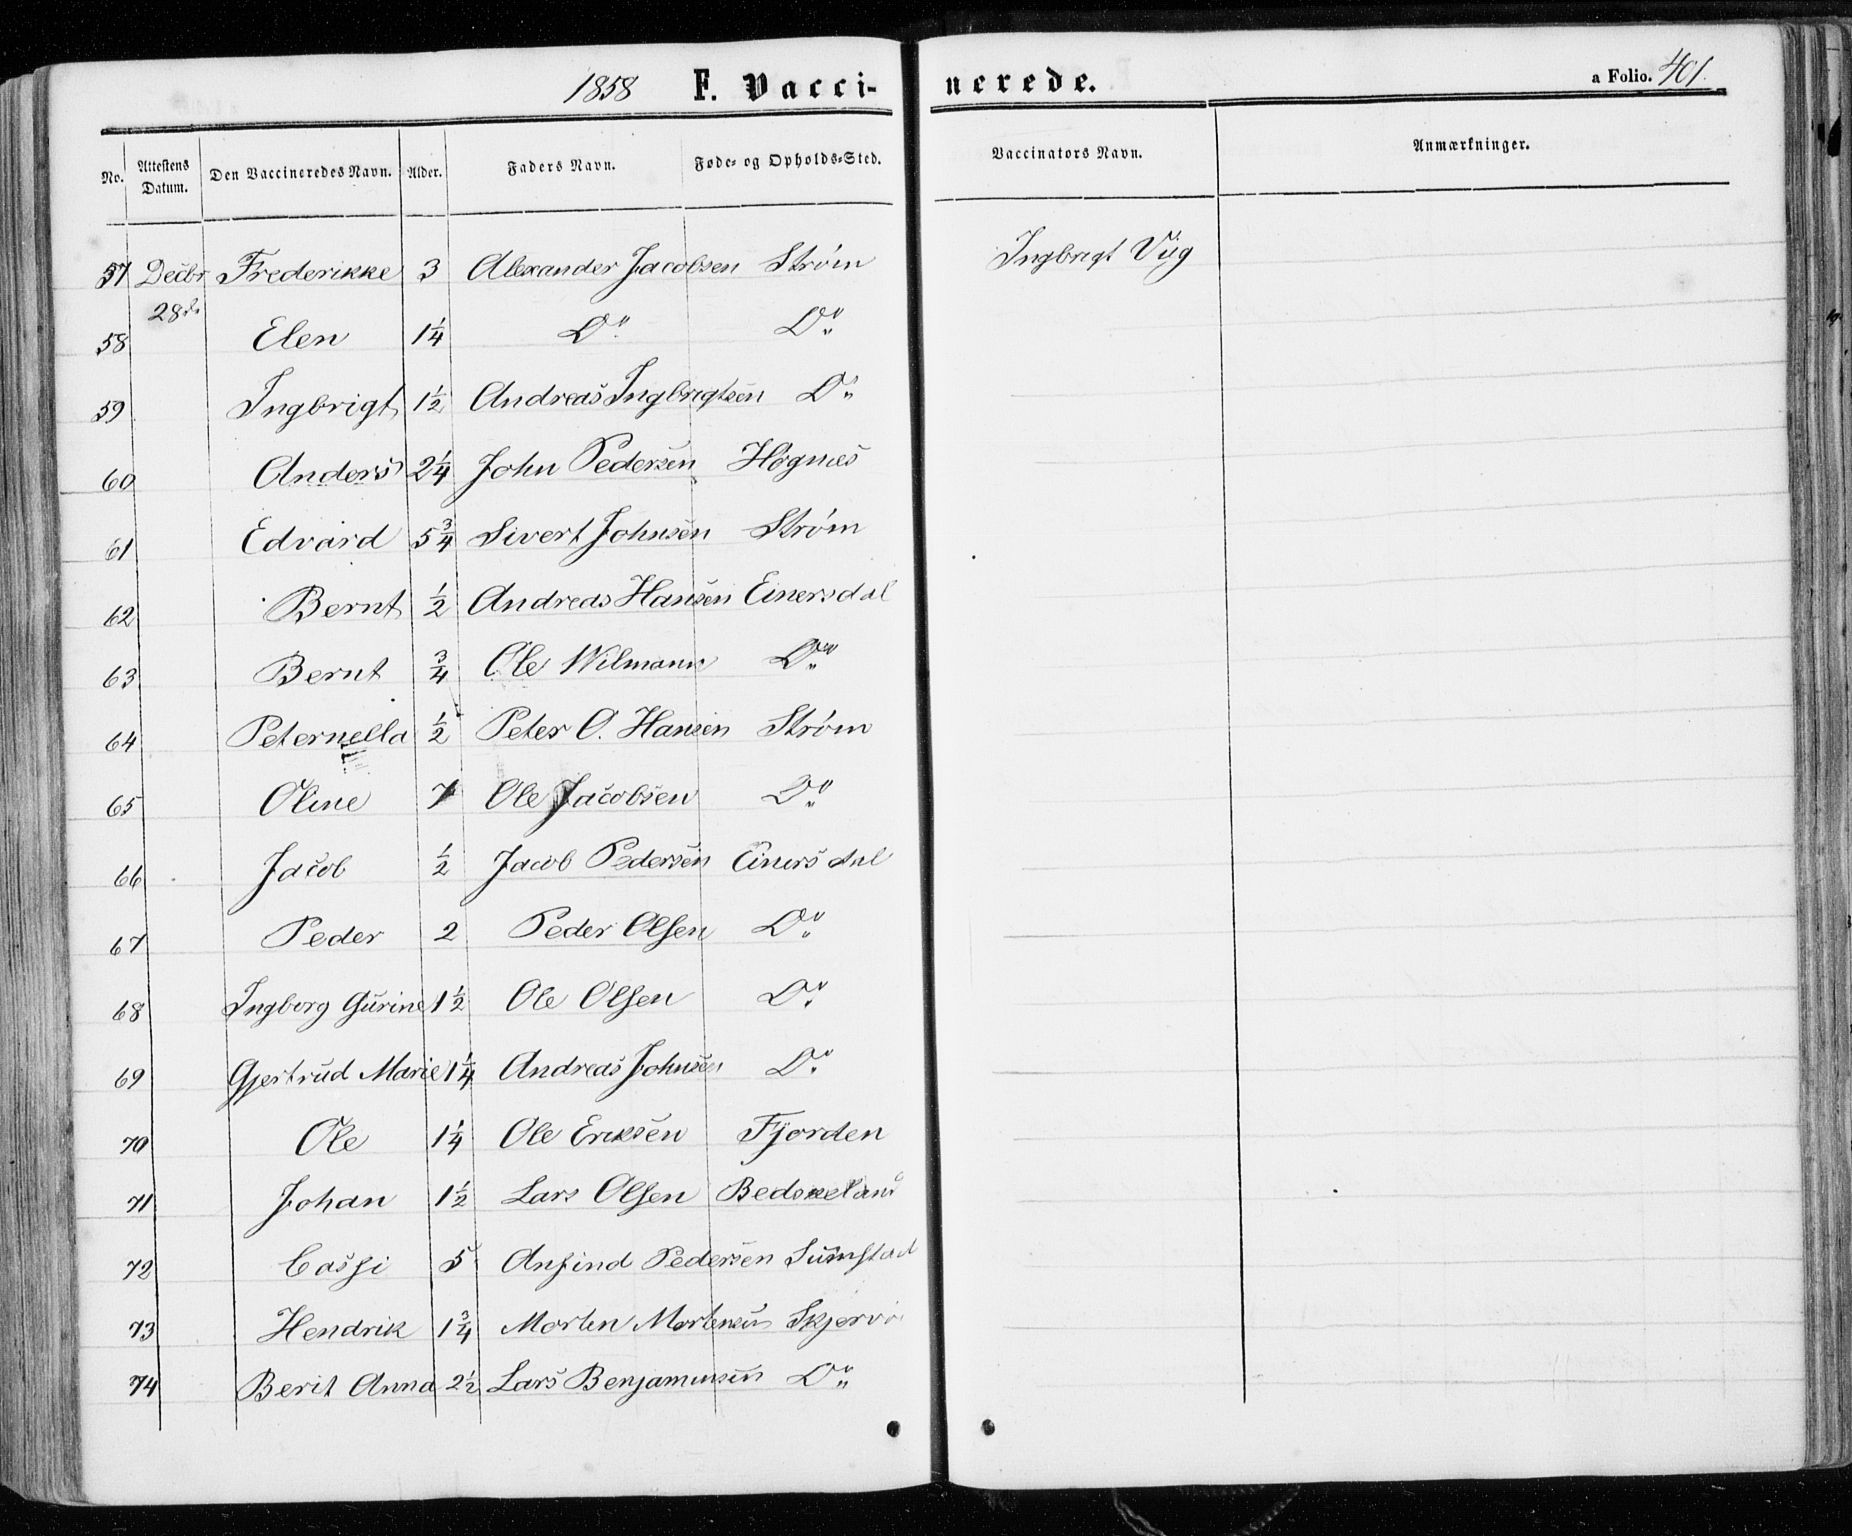 1858 F. Vacci- nerede. a Folio. 401.
No. Attestens Datum. Den Vaccineredes Navn. Alder. Faders Navn. Føde- og Opholds-Sted. Vaccinators Navn. Anmærkninger.
57 Decbr Frederikke 3 Alexander Jacobsen Strøm Ingbrigt Viig
28de
58 Elen 1 1/4 Do Do
59 Ingbrigt 1 1/2 Andreas Ingbrigtsen Do
60 Anders 2 1/4 John Pedersen Høgnæs
61 Edvard 5 3/4 Sivert Johnsen Strøm
62 Bernt 1/2 Andreas Hansen Einersdal
63 Bernt 3/4 Ole Wilmann Do
64 Peternella 1/2 Peter O. Hansen Strøm
65 Oline 7 Ole Jacobsen Do
66 Jacob 1/2 Jacob Pedersen Einersdal
67 Peder 2 Peder Olsen Do
68 Ingborg Gurine 1 1/2 Ole Olsen Do
69 Gjertrud Marie 1 1/4 Andreas Johnsen Do
70 Ole 1 1/4 Ole Eriksen Fjorden
71 Johan 1 1/2 Lars Olsen
72 Cassi 5 Anfind Pedersen Sumstad
73 Hendrik 1 3/4 Morten Mortensen Skjervø
74 Berit Anna 2 1/2 Lars Benjaminsen Do